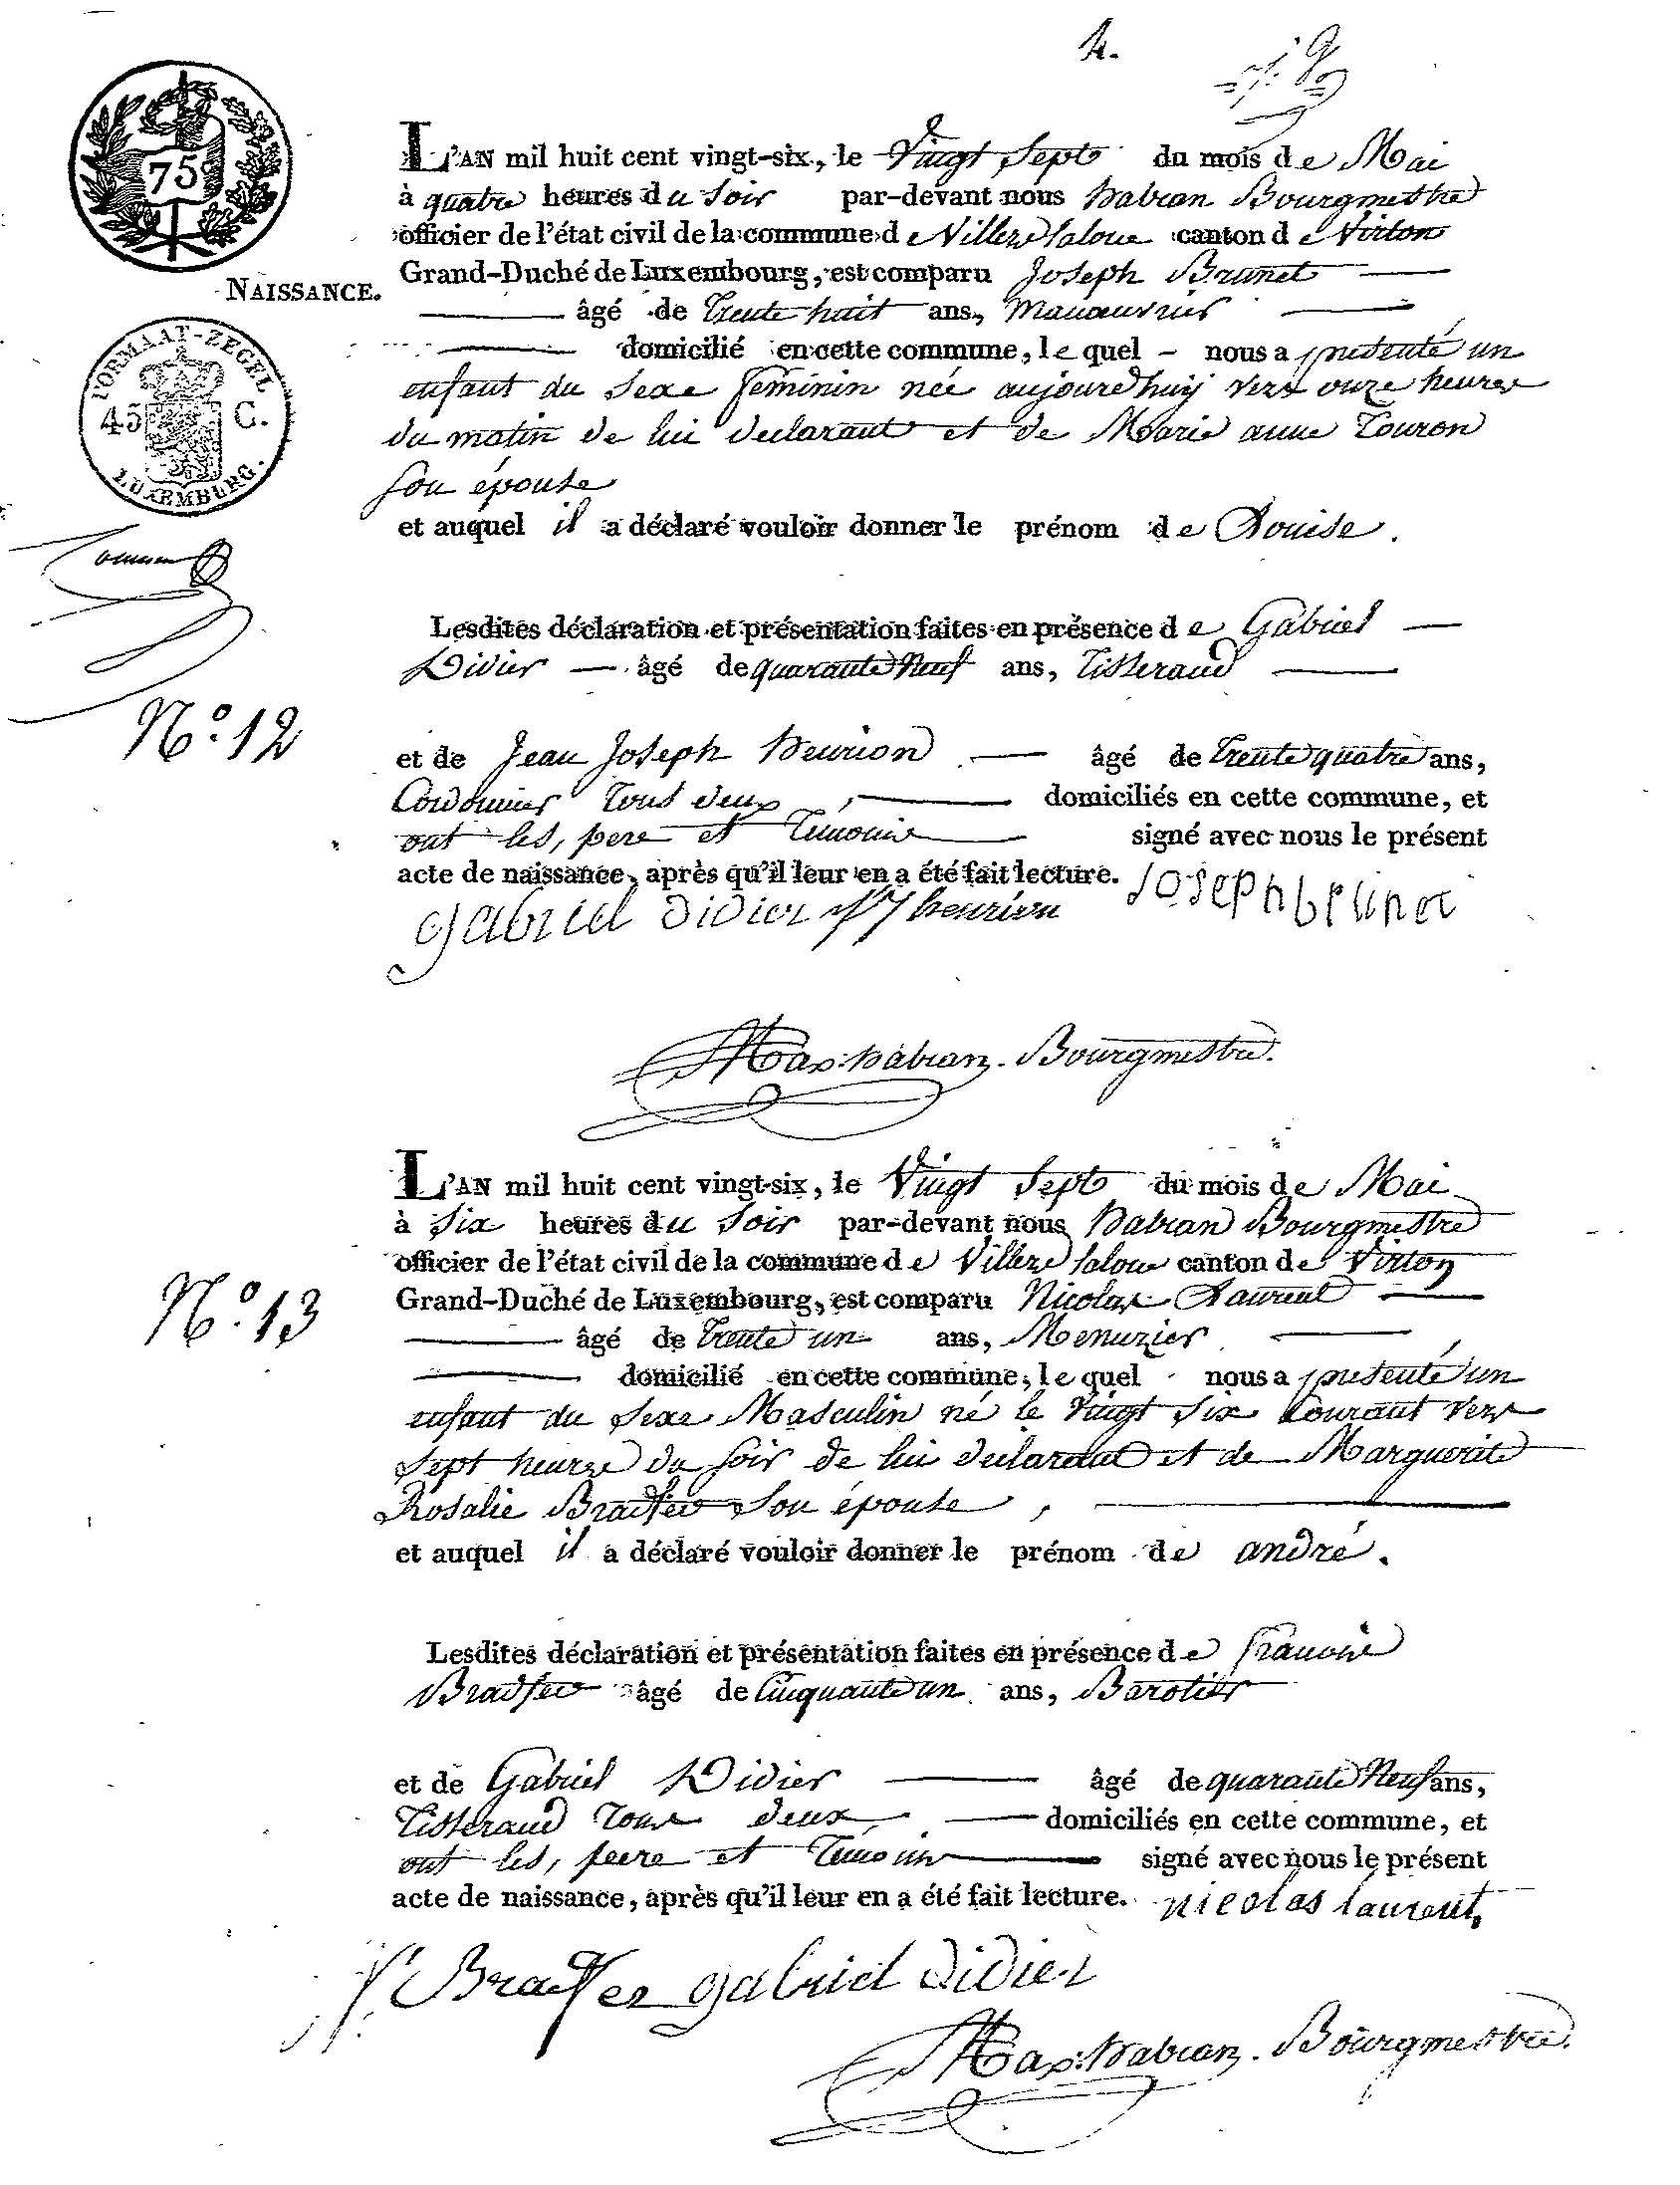 4.
75
L'AN mil huit cent vingt-six, le Vingt Sept du mois de Mai
à quatre heures du Soir par-devant nous habran Bourgmestre
officier de l'état civil de la commune de Villers Saloue canton de Virton
NAISSANCE.
Grand-Duché de Luxembourg, est comparu Joseph Brunet
âgé de Trente huit ans, Manoeuvrier
FORMAAT-ZEGEL
45 C.
LUXEMBURG.
domicilié en cette commune, le quel nous a presenté un
enfant du Sexe feminin née aujourdhuy vers onze heures
du matin de lui declarant et de Marie anne Touron
Son épouse
et auquel il a déclaré vouloir donner le prénom de Louise.
Lesdites déclaration et présentation faites en présence de Gabriel
Didier âgé de quarante Neuf ans, Tisserand
No. 12
et de Jean Joseph henrion âgé de Trente quatre ans,
Cordonnier Tous deux, domiciliés en cette commune, et
ont les, pere et Temoins signé avec nous le présent
acte de naissance, après qu'il leur en a été fait lecture. Joseph brunet
gabriel didier JJ henrion
Max: habran. Bourgmestre.
L'AN mil huit cent vingt-six, le Vingt Sept du mois de Mai
à Six heures du Soir par-devant nous habran Bourgmestre
officier de l'état civil de la commune de Villers Saloue canton de Virton
No. 13
Grand-Duché de Luxembourg, est comparu Nicolas Laurent
âgé de Trente un ans, Menuzier
domicilié en cette commune, le quel nous a presenté un
enfant du Sexe Masculin né le Vingt Six Courant vers
Sept heures du Soir de lui declarant et de Marguerite
Rosalie Bradfer Son épouse,
et auquel il a déclaré vouloir donner le prénom de andré.
Lesdites déclaration et présentation faites en présence de francois
Bradfer âgé de Cinquante un ans, Barotier
et de Gabriel Didier âgé de quarante Neuf ans,
Tisserand Tous deux, domiciliés en cette commune, et
ont les, peere et Temoins signé avec nous le présent
acte de naissance, après qu'il leur en a été fait lecture. nicolas laurent,
f. Bradfer gabriel didier
Max: habran. Bourgmestre.